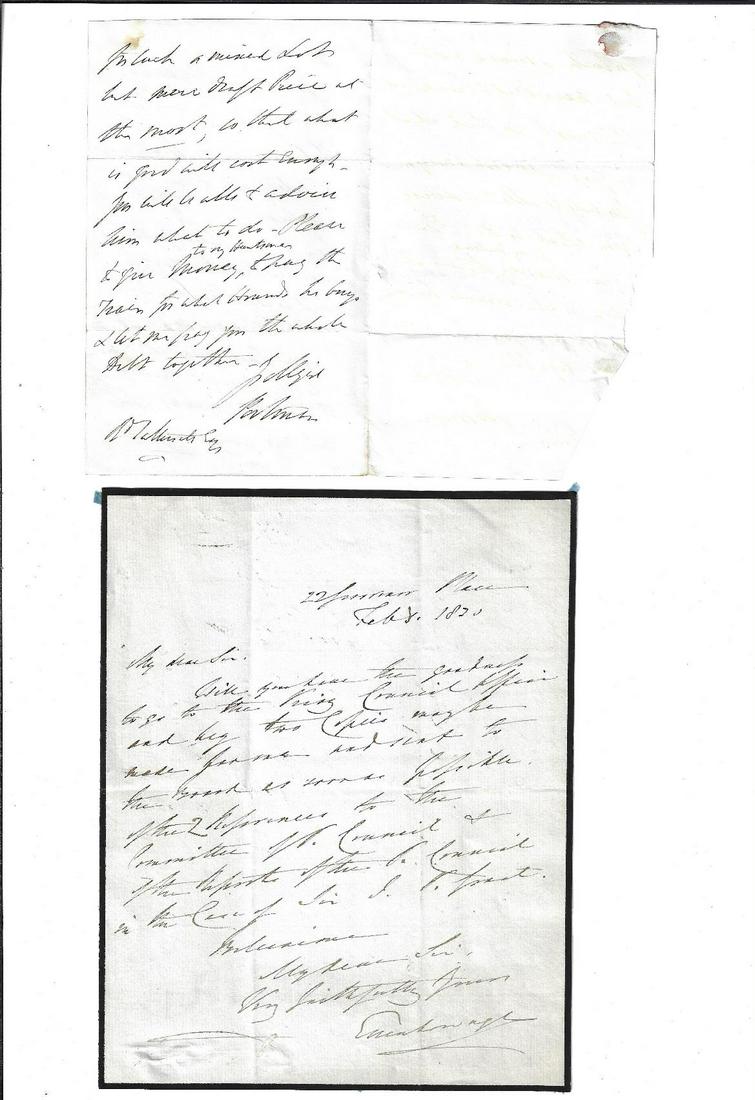 for such a mixed Lot
but mere draft Price at
the most, so that what
is good will cost enough -
you will be able & advise
him what to do - Please
to my Huntsman
& give Money, & pay the
Train for what Hounds he buys
& let me pay you the whole
Debt together -
Yr Obliged
Portman
Rd Tattersall Esq
22 Grosvenor Place
Feb 8. 1830
My dear Sir.
Will you have the goodness
to go to the Privy Council Office
and beg two Copies may be
made for me and sent to
the Board as soon as possible
of the 2 References to the
Committee of P. Council &
of the Reports of the P. Council
in the Case of Sir J. P. Grant.
Believe me
My dear Sir,
Very faithfully yours
Ellenborough